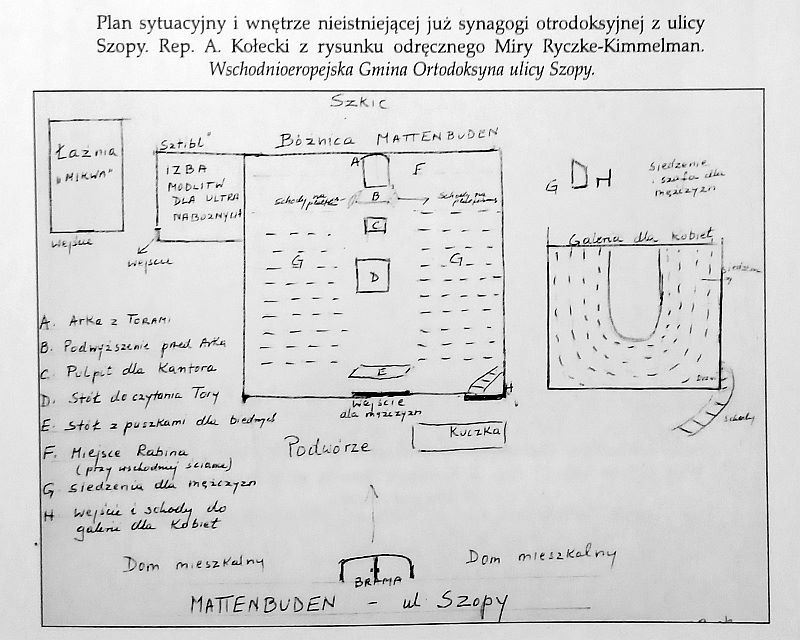 Plan sytuacyjny i wnętrze nieistniejącej już synagogi otrodoksyjnej z ulicy
Szopy. Rep. A. Kołecki z rysunku odręcznego Miry Ryczke-Kimmelman.
Wschodnioeropejska Gmina Ortodoksyna ulicy Szopy.
Szkic
Łaźnia
„MIKWA"
wejście
Sztibl"
IZBA
MODLITW
DLA ULTRA
NABOŻNYCH
wejście
Bóżnica MATTENBUDEN
A
F
schody na
B
schody na
C
G
G
D
E
H
wejście
dla mężczyzn
G
H
siedzenie
i szafa dla
mężczyzn
Galeria dla kobiet
Drzwi
schody
A. Arka z TORAMI
B. Podwyższenie przed Arką
C. Pulpit dla Kantora
D. Stół do czytania Tory
E. Stół z puszkami dla biednych
F. Miejsce Rabina
(przy wschodniej ścianie)
G siedzenia dla mężczyzn
H wejście i schody do
galerii dla kobiet
Podwórze
KUCZKA
Dom mieszkalny
BRAMA
Dom mieszkalny
MATTENBUDEN - ul Szopy